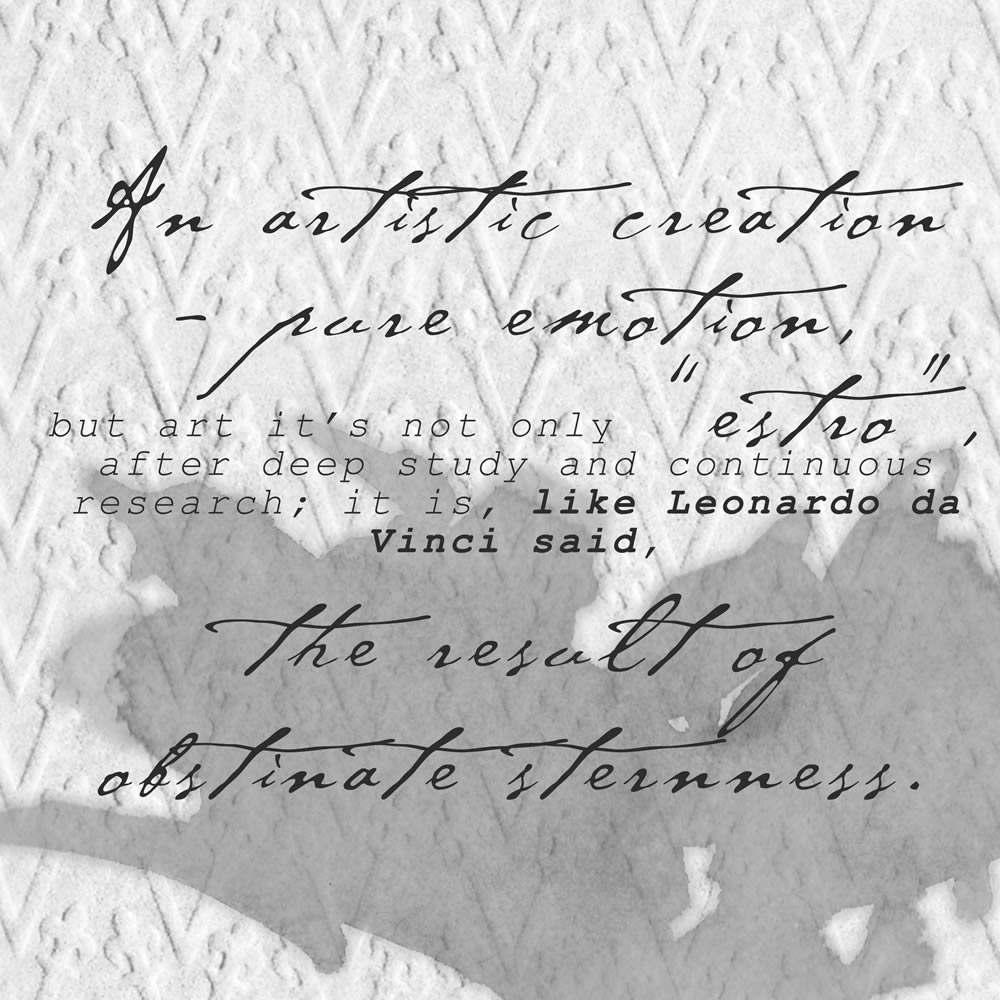 An artistic creation
- pure emotion,
but art it's not only "estro",
after deep study and continuous
research; it is, like Leonardo da
Vinci said,
the result of
obstinate sternness.